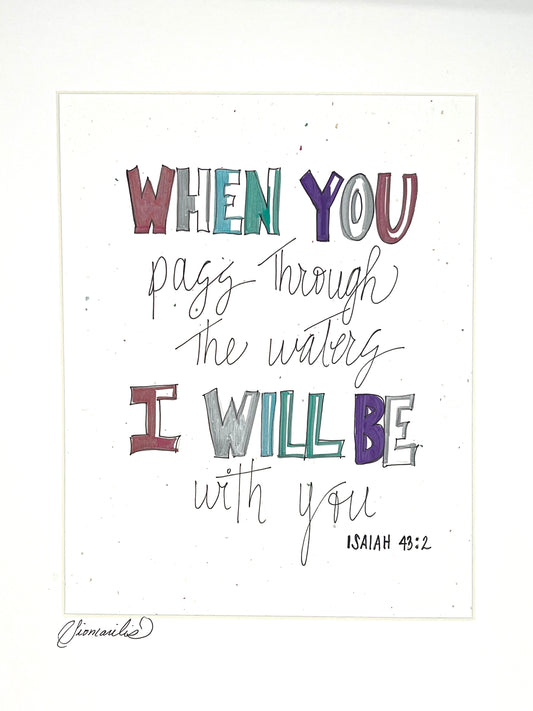 WHEN YOU
pass through
the waters
I WILL BE
with you
ISAIAH 43:2